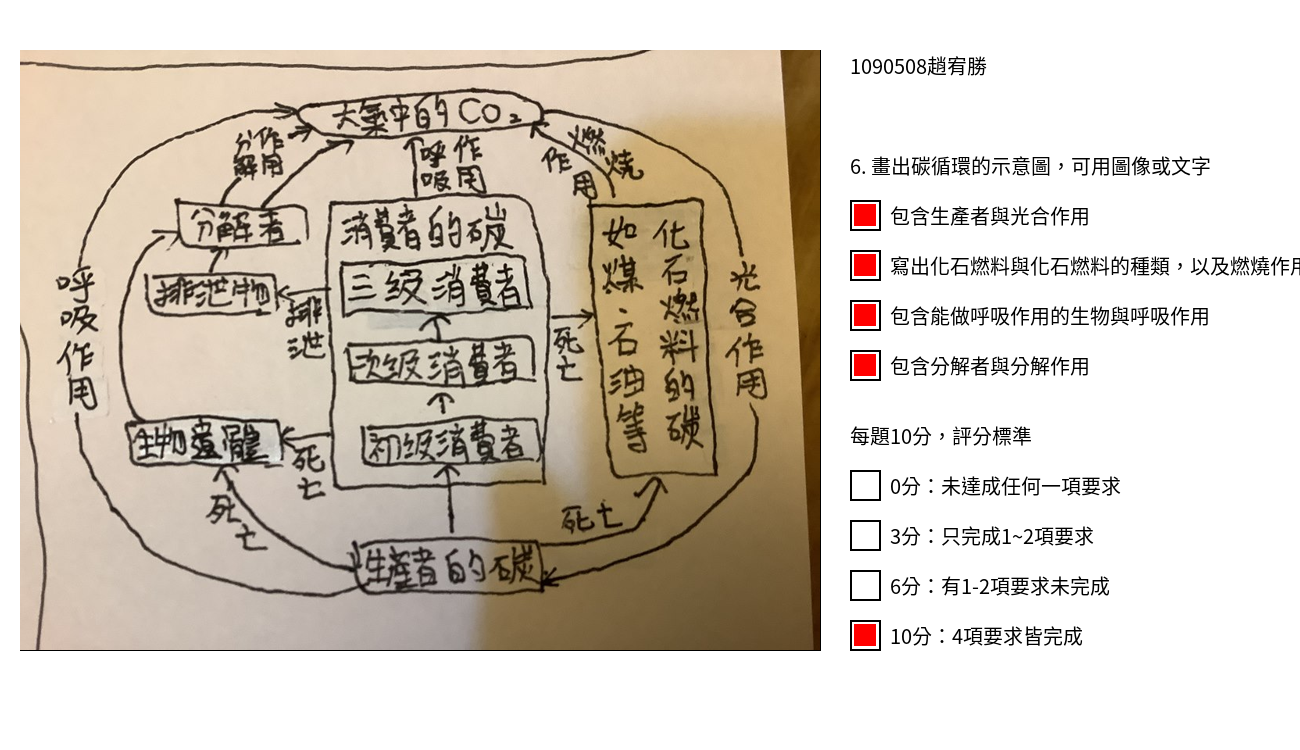 大氣中的CO₂
分解作用
呼吸作用
燃燒作用
分解者
排泄物
排泄
消費者的碳
三級消費者
次級消費者
初級消費者
化石燃料的碳
如煤、石油等
死亡
呼吸作用
光合作用
生物遺體
死亡
死亡
死亡
生產者的碳
1090508趙宥勝
6. 畫出碳循環的示意圖，可用圖像或文字
包含生產者與光合作用
寫出化石燃料與化石燃料的種類，以及燃燒作用
包含能做呼吸作用的生物與呼吸作用
包含分解者與分解作用
每題10分，評分標準
0分：未達成任何一項要求
3分：只完成1~2項要求
6分：有1-2項要求未完成
10分：4項要求皆完成